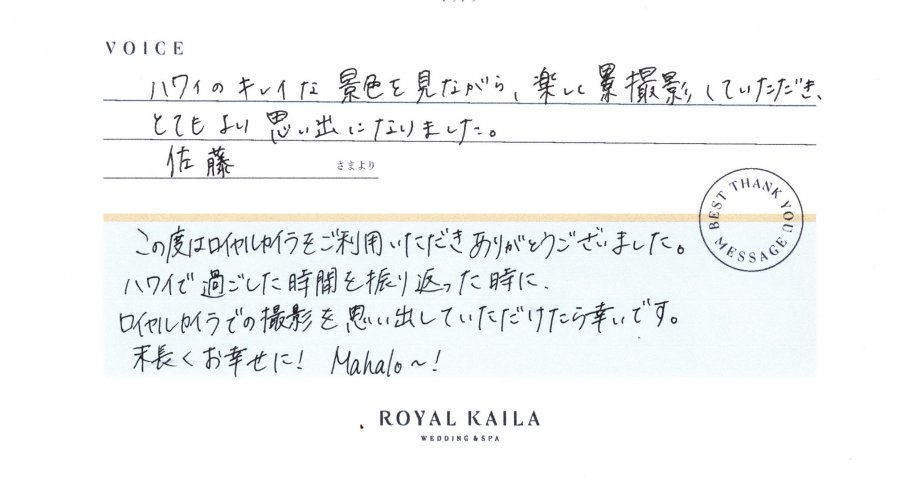 VOICE
ハワイのキレイな景色を見ながら、楽しく撮影していただき、
とてもよい思い出になりました。
佐藤 さまより
BEST THANK YOU MESSAGE
この度はロイヤルカイラをご利用いただきありがとうございました。
ハワイで過ごした時間を振り返った時に、
ロイヤルカイラでの撮影を思い出していただけたら幸いです。
末長くお幸せに! Mahalo〜!
ROYAL KAILA
WEDDING & SPA